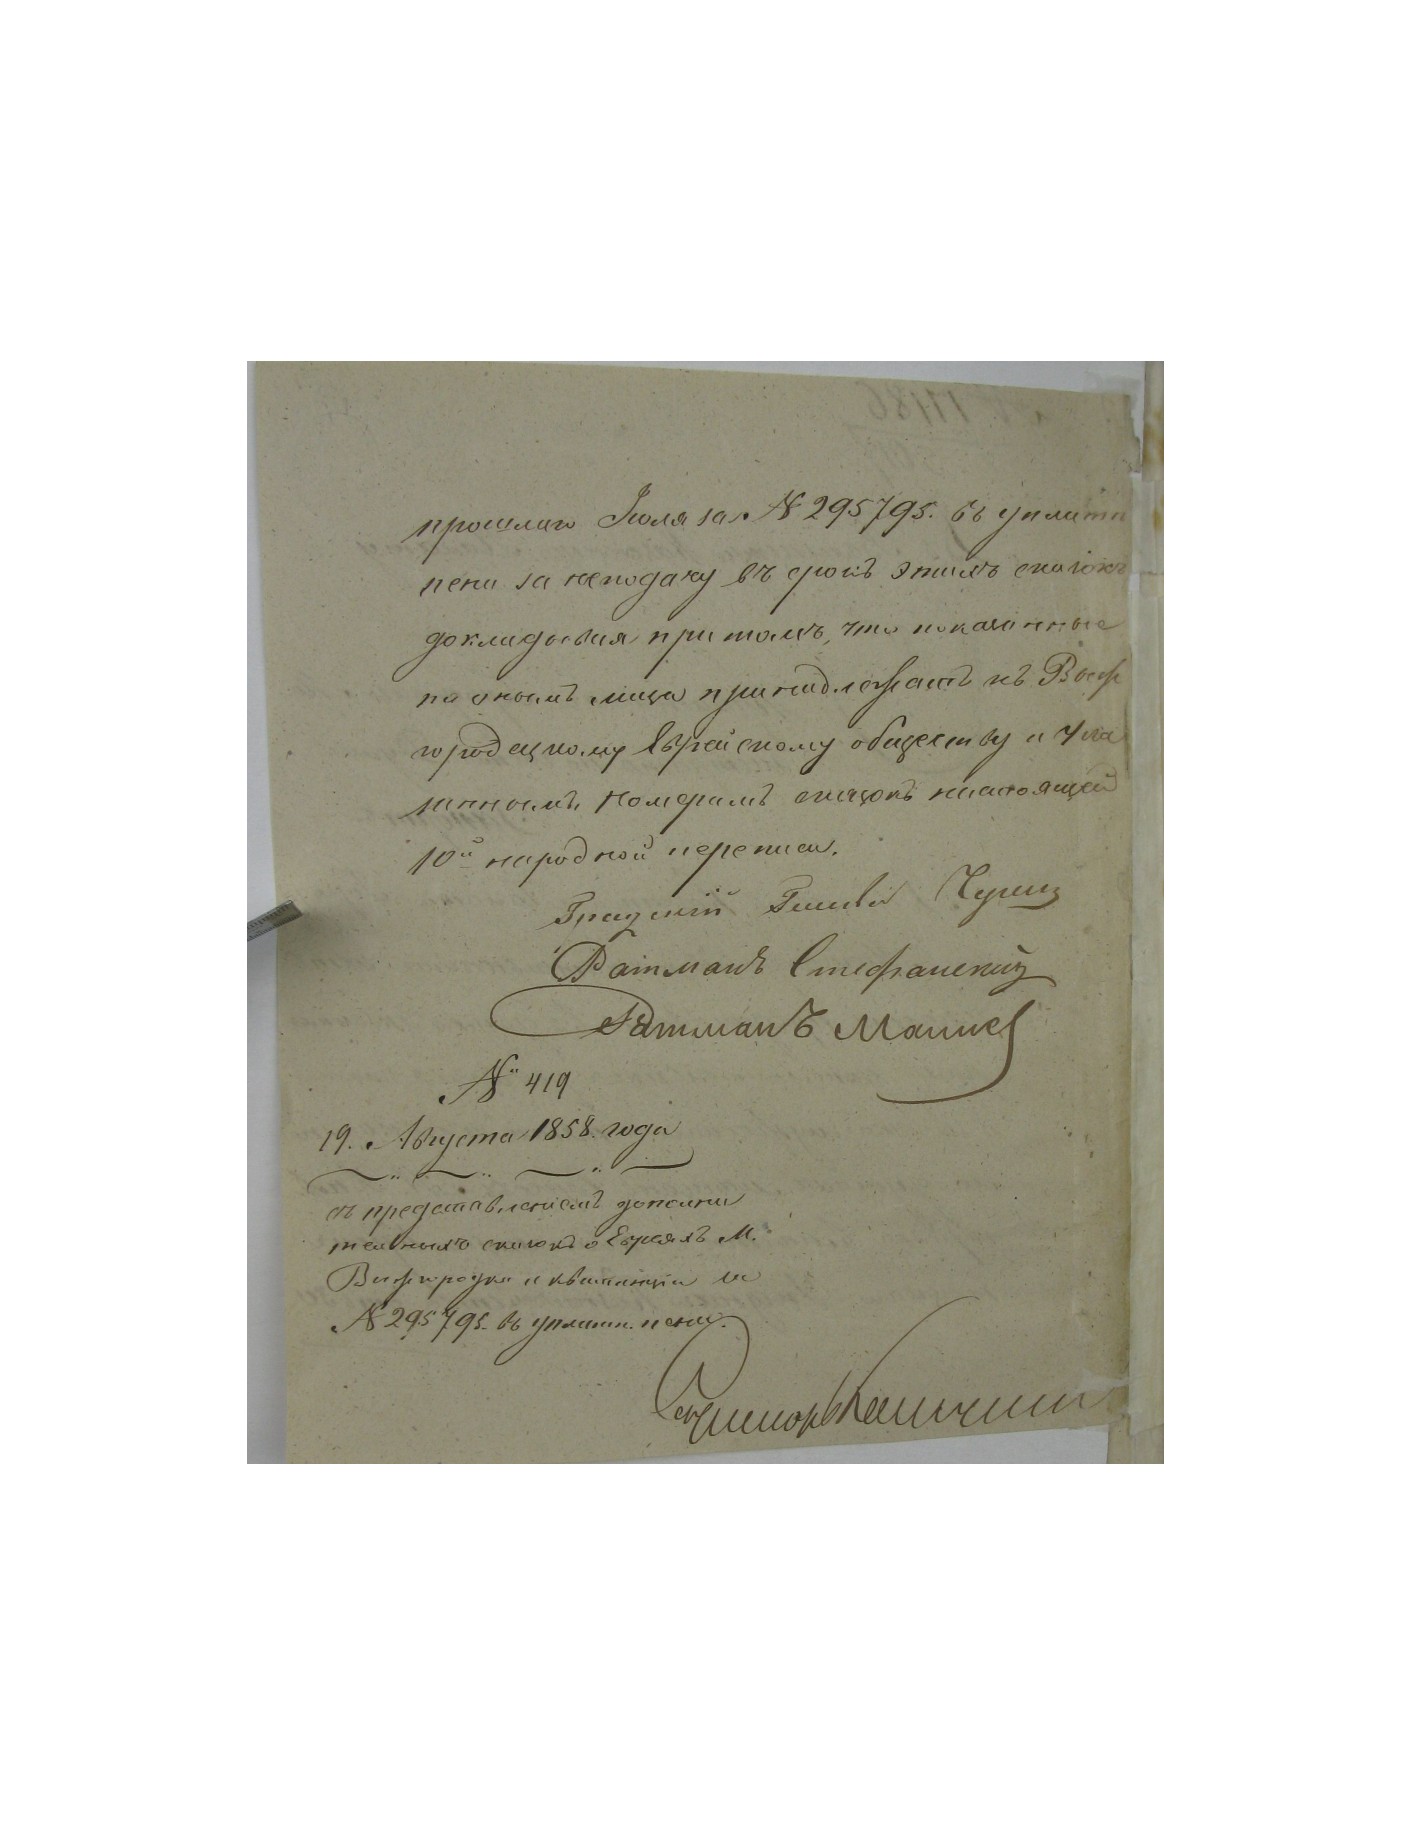 прошлаго Іюля за № 295795. въ уплатѣ
пени за неподачу въ срокъ этихъ сказокъ
докладывая притомъ, что показанные
по онымъ лица принадлежатъ къ Выш
городецкому Еврейскому обществу и ука
заннымъ номерамъ сказокъ настоящей
10й народной переписи.
Градскій Глава
Ратманъ Стефанскій
Ратманъ
№ 419
19. Августа 1858. года
съ представленіемъ дополни
тельныхъ сказокъ о Евреяхъ М.
Вышгородка и квитанціи за
№ 295795. въ уплатѣ пени.